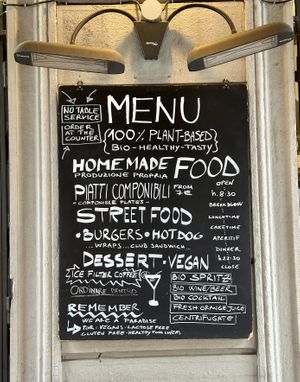 NO TABLE
SERVICE
ORDER
AT THE
COUNTER
MENU
100% PLANT-BASED
BIO-HEALTHY-TASTY
HOMEMADE FOOD
PRODUZIONE PROPRIA
PIATTI COMPONIBILI FROM 7€
COMPONIBLE PLATES
STREET FOOD
• BURGERS • HOT DOG
...WRAPS...CLUB SANDWICH...
DESSERT-VEGAN
OPEN
h. 8:30
BREAKSLOW
LUNCHTIME
CAKETIME
APERITIF
DINNER
h 22:30
CLOSE
ICE FILTER COFFEE
ORDINARE DENTRO
REMEMBER
WE ARE A PARADISE
FOR: VEGANS-LACTOSE FREE
GLUTEN FREE-HEALTHY FOOD LOVERS
BIO SPRITZ
BIO WINE/BEER
BIO COCKTAIL
FRESH ORANGE JUICE
CENTRIFUGATE